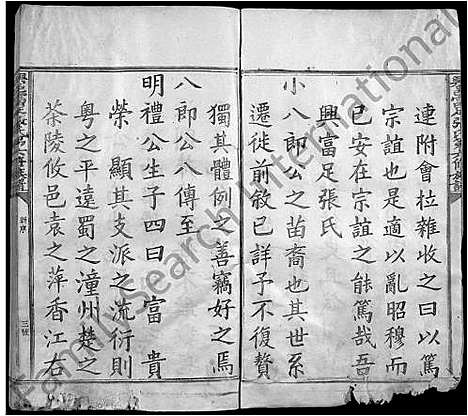 連附會拉雜收之曰以篤
宗誼也是適以亂昭穆而
已安在宗誼之能篤哉吾
興富足張氏
小八郎公之苗裔也其世系
遷徙前敘已詳予不復贅
獨其體例之善竊好之焉
八郎公八傳至
明禮公生子四曰富貴
榮顯其支派之流衍則
粵之平遠蜀之潼州楚之
茶陵攸邑袁之萍香江右
新序
三號
FamilySearch International